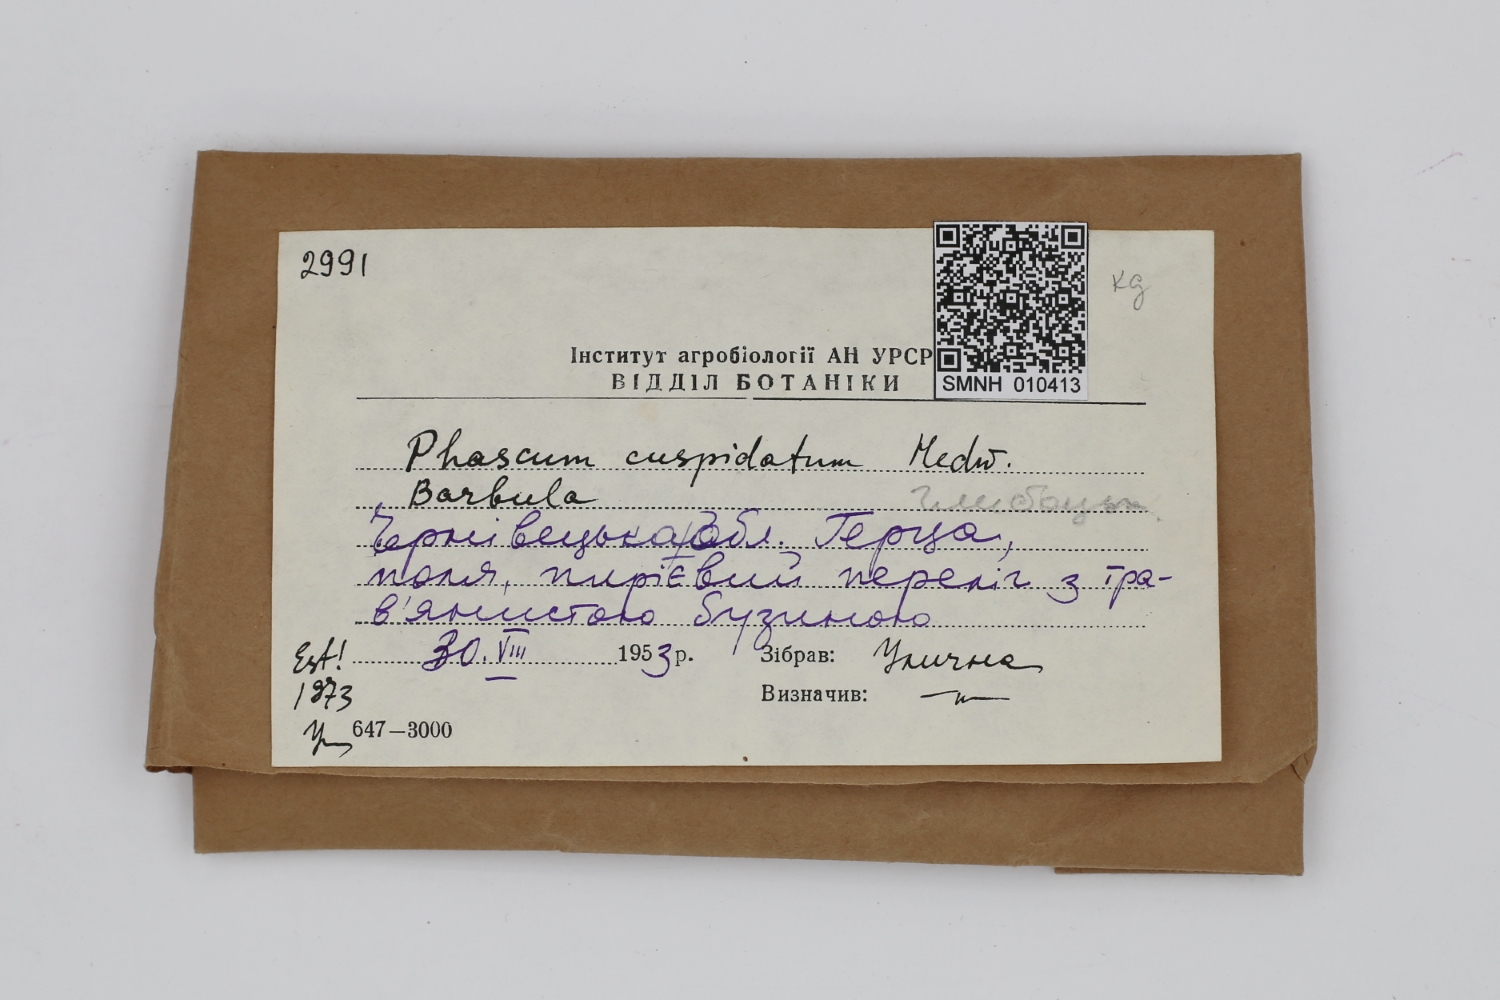 2991
кд
Інститут агробіології АН УРСР
ВІДДІЛ БОТАНІКИ
SMNH 010413
Phascum cuspidatum Hedw.
Barbula
Чернівецька обл. Герца,
поля, пирієвий переліг з тра-
в'янистою бузиною
30.VIII 1953 р. Зібрав: Улична
Est!
1973 Визначив: —"—
647—3000